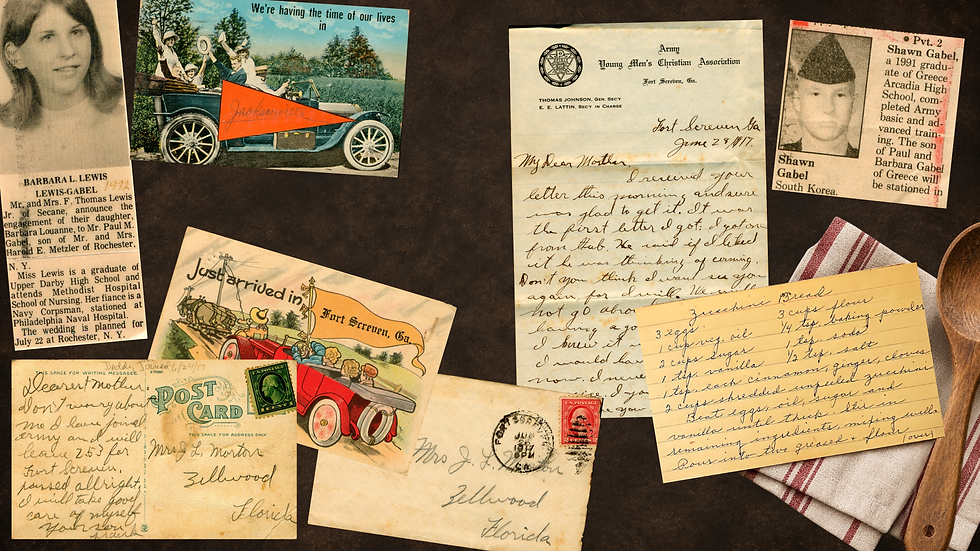 BARBARA L. LEWIS
LEWIS-GABEL 1972
Mr. and Mrs. F. Thomas Lewis
Jr. of Secane, announce the
engagement of their daughter,
Barbara Louanne, to Mr. Paul M.
Gabel, son of Mr. and Mrs.
Harold E. Metzler of Rochester,
N. Y.
Miss Lewis is a graduate of
Upper Darby High School and
attends Methodist Hospital
School of Nursing. Her fiance is a
Navy Corpsman, stationed at
Philadelphia Naval Hospital.
The wedding is planned for
July 22 at Rochester, N. Y.
We're having the time of our lives
in
Jacksonville
Just arrived in
Fort Screven, Ga.
THIS SPACE FOR WRITING MESSAGES
POST
CARD
THIS SPACE FOR ADDRESS ONLY
Dearest Mother
Don't worry about
me I have joined
army and will
leave 253 for
Fort Screven,
passed allright,
I will take good
care of myself
Your son
Mrs J. L. Morton
Zellwood
Florida
U.S. POSTAGE
JUN
1917
GA.
Mrs J. L. Morton
Zellwood
Florida
Army
Young Men's Christian Association
Fort Screven, Ga.
THOMAS JOHNSON, GEN. SEC'Y
E. E. LATTIN, SEC'Y IN CHARGE
Fort Screven Ga
June 28, 1917.
My Dear Mother
I received your
letter this morning and sure
was glad to get it. It was
the first letter I got. I got one
from Hub. He said if I liked
it he was thinking of coming.
Don't you think I will see you
again for I will. We will
not go
having a
I knew it
I would ha
now. I
• Pvt. 2
Shawn Gabel,
a 1991 gradu-
ate of Greece
Arcadia High
School, com-
pleted Army
basic and ad-
vanced train-
ing. The son
of Paul and
Barbara Gabel
of Greece will
be stationed in
Shawn
Gabel
South Korea.
Zucchini Bread
3 eggs
3 cups flour
1 cup veg. oil
1/4 tsp. baking powder
2 cups sugar
1 tsp. soda
1 tsp. vanilla
1/2 tsp. salt
1 tsp. each cinnamon, ginger, cloves
2 cups shredded unpeeled zucchini
Beat eggs, oil, sugar and
vanilla until thick. Stir in
remaining ingredients, mixing well.
Pour into two greased + flour
(over)